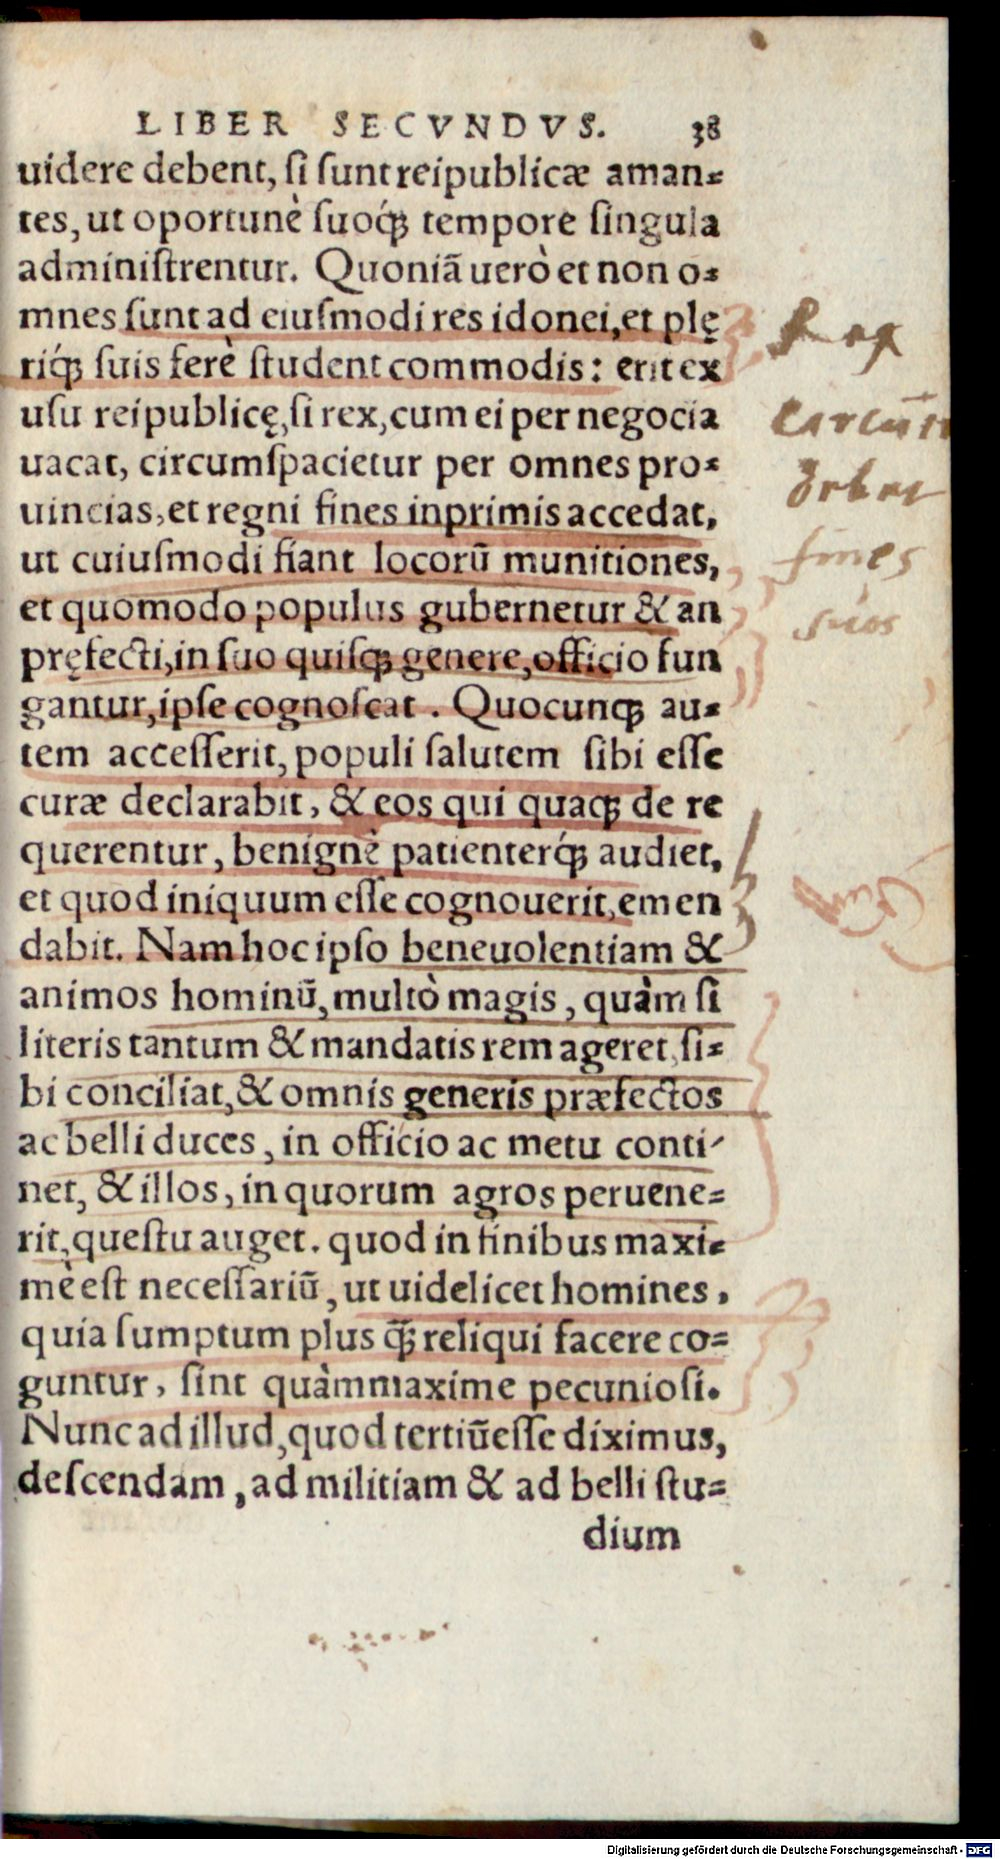 LIBER SECVNDVS. 38
uidere debent, ſi ſunt reipublicæ aman-
tes, ut oportunè ſuoq́ꝫ tempore ſingula
adminiſtrentur. Quoniã uerò et non o-
mnes ſunt ad eiuſmodi res idonei, et plę
riq́ꝫ ſuis ferè ſtudent commodis: erit ex
uſu reipublicę, ſi rex, cum ei per negocia
uacat, circumſpacietur per omnes pro-
uincias, et regni fines inprimis accedat,
ut cuiuſmodi fiant locorũ munitiones,
et quomodo populus gubernetur & an
pręfecti, in ſuo quiſqꝫ genere, officio fun
gantur, ipſe cognoſcat. Quocunqꝫ au-
tem acceſſerit, populi ſalutem ſibi eſſe
curæ declarabit, & eos qui quaqꝫ de re
querentur, benignè patienterq́ꝫ audiet,
et quod iniquum eſſe cognouerit, emen
dabit. Nam hoc ipſo beneuolentiam &
animos hominũ, multò magis, quàm ſi
literis tantum & mandatis rem ageret, ſi-
bi conciliat, & omnis generis præfectos
ac belli duces, in officio ac metu conti-
net, & illos, in quorum agros peruene-
rit, queſtu auget. quod in finibus maxi-
mè eſt neceſſariũ, ut uidelicet homines,
quia ſumptum plus q̃ꝫ reliqui facere co-
guntur, ſint quàm maxime pecunioſi.
Nunc ad illud, quod tertiũ eſſe diximus,
deſcendam, ad militiam & ad belli ſtu-
dium
Rex
debet
fines
suos
Digitalisierung gefördert durch die Deutsche Forschungsgemeinschaft - DFG